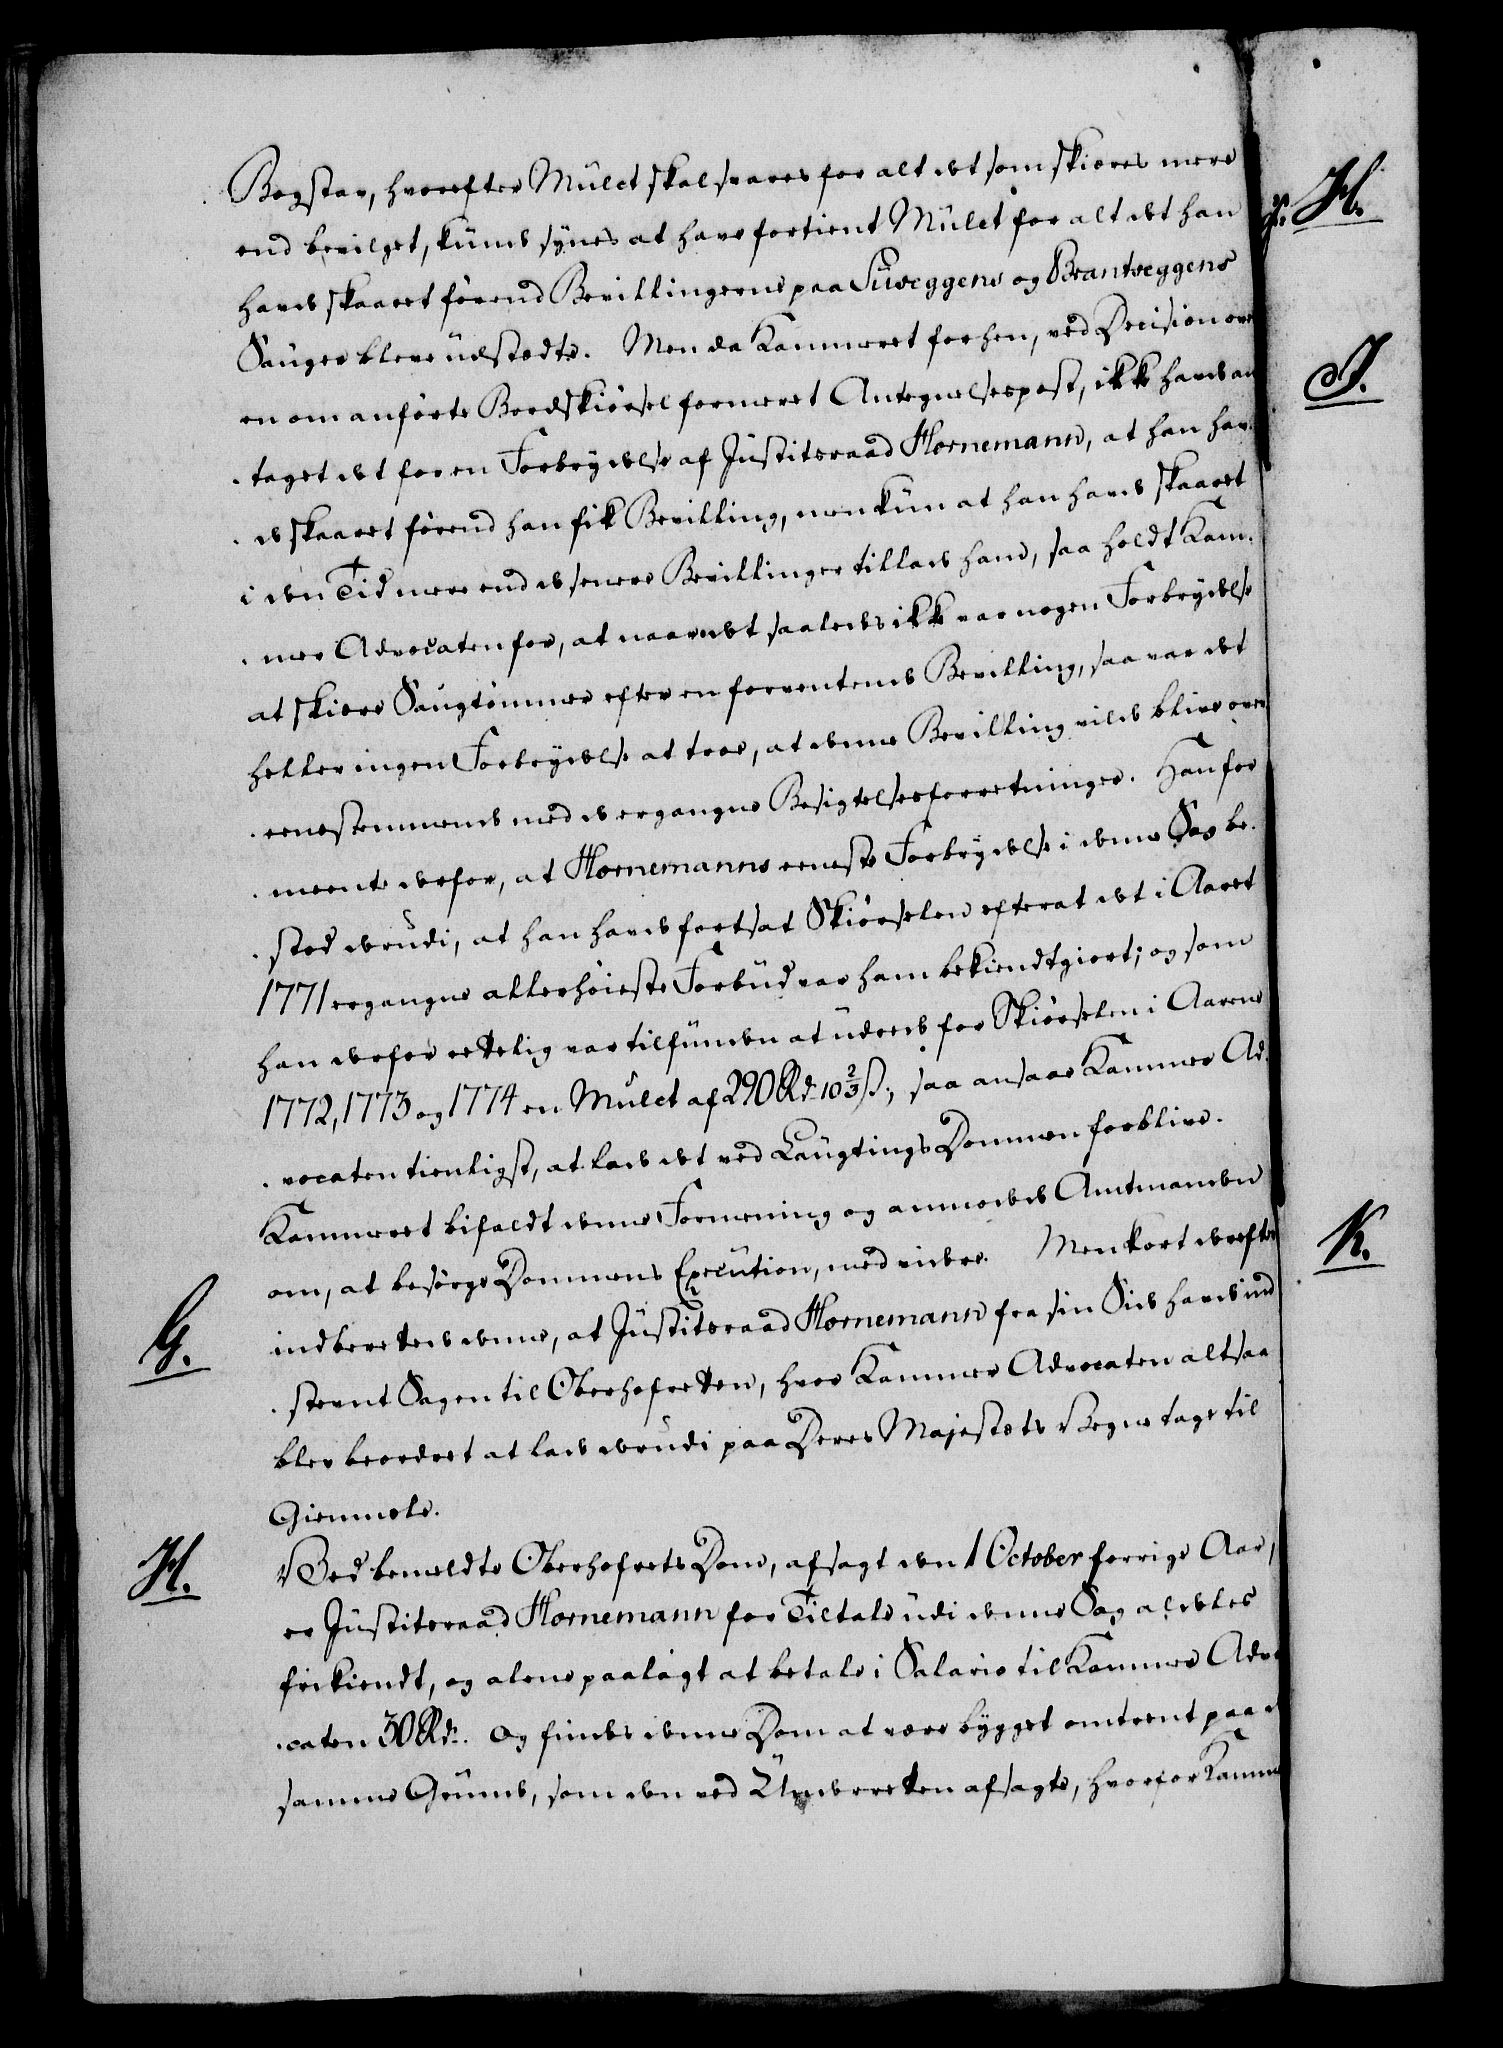 Bogstav, hvorefter Mulct skal svares for alt det som skiæres mere
end bevilget, kunde synes at have fortient Mulct for alt det han
havde skaaret førend Bevillingerne paa Suveggens og Brantveggens
Sauger bleve udstædte. Men da Kammeret forhen, ved Decision over
en om anførte Bordskiørsel formeret Antegnelsespost, ikke havde an-
taget det for en Forbrydelse af Justitsraad Hornemann, at han hav-
de skaaret førend han fik Bevilling, men kun at han havde skaaret
i den Tid mere end de senere Bevillinger tillade ham, saa holdt Kam-
mer Advocaten for, at naar det saaledes ikke var nogen Forbrydelse
at skiære Saugtømmer efter en forventende Bevilling, saa var det
heller ingen Forbrydelse at troe, at denne Bevilling vilde blive over-
eensstemmende med de ergangne Besigtelsesforretninger. Han for-
meente derfor, at Hornemanns eeneste Forbrydelse i denne Sag be-
stod derudi, at han havde fortsat Skiørselen efterat det i Aaret
1771 ergangne allerhøieste Forbud var ham bekiendtgiort; og som
han derfor rettelig var tilfunden at udrede for Skiørselen i Aarene
1772, 1773 og 1774 en Mulct af 290 Rd. 10 2/3 ß; saa ansaae Kammer Ad-
vocaten tienligst, at lade det ved Laugtings Dommen forblive.
Kammeret bifaldt denne Formening og anmodede Amtmanden
om, at besørge Dommens Execution, med videre. Men kort derefter
G. indberettede denne, at Justitsraad Hornemann fra sin Side havde ind-
stevnt Sagen til Oberhofretten, hvor Kammer Advocaten altsaa
blev beordret at lade derudi paa Deres Majestæts Vegne tage til
Giemmæle.
H. Ved bemeldte Oberhofrets Dom, afsagt den 1 October forrige Aar,
er Justitsraad Hornemann for Tiltale udi denne Sag aldeles
frikiendt, og alene paalagt at betale i Salario til Kammer Advo-
caten 30 Rd. Og findes denne Dom at være bygget omtrent paa de
samme Grunde, som den ved Underretten afsagte, hvorfor Kammer
H.
I.
K.